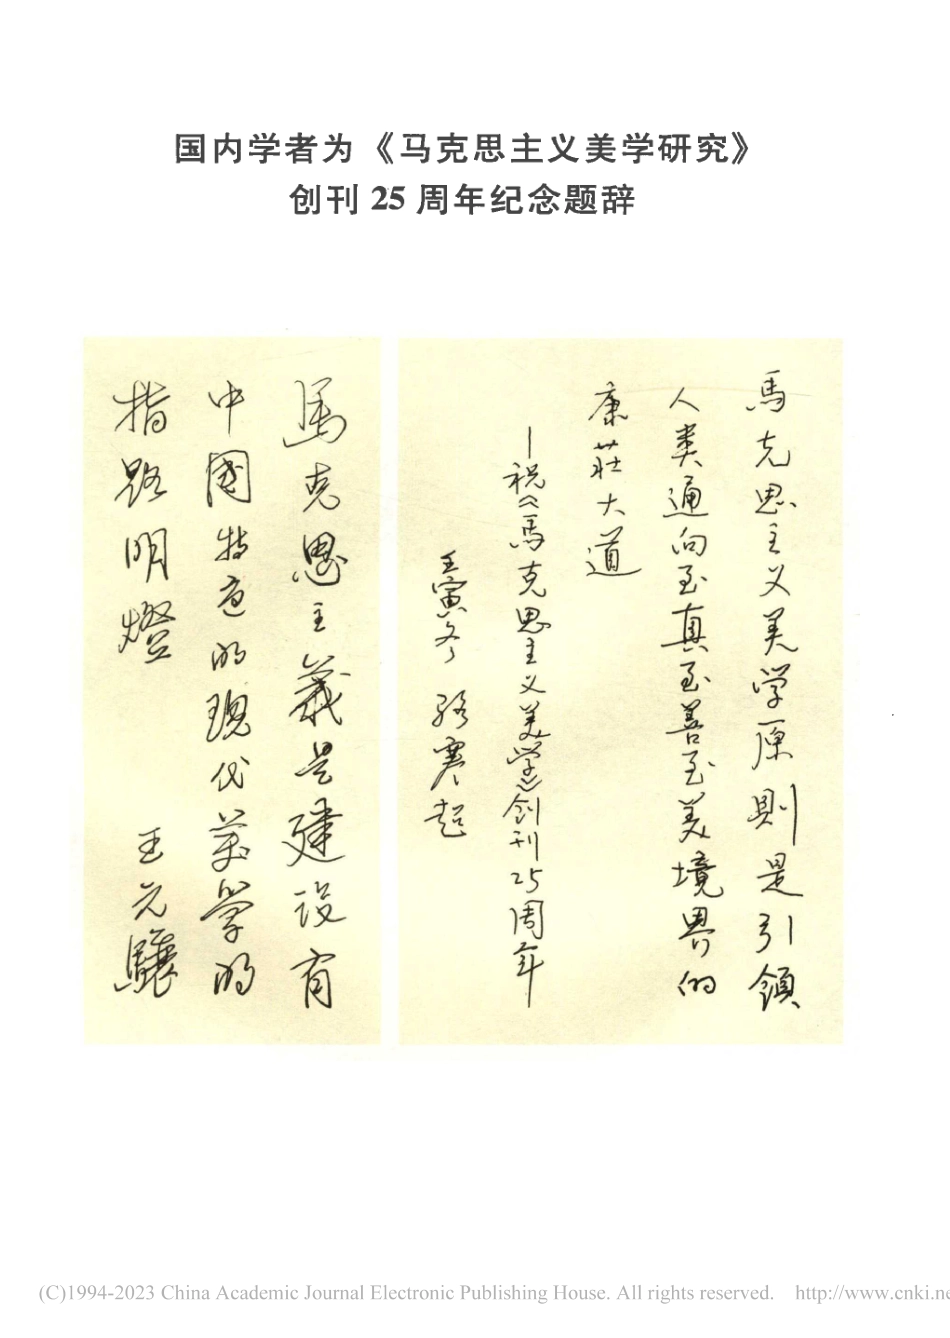 国内学者为《马克思主义美学研究》
创刊 25 周年纪念题辞
馬克思主义美学原則是引領
人类通向至真至善至美境界的
康莊大道
—祝《馬克思主义美学》创刊25周年—
壬寅冬 骆寒超
馬克思主義是建设有
中國特色的现代美學的
指路明燈
王元驤
(C)1994-2023 China Academic Journal Electronic Publishing House. All rights reserved. http://www.cnki.ne